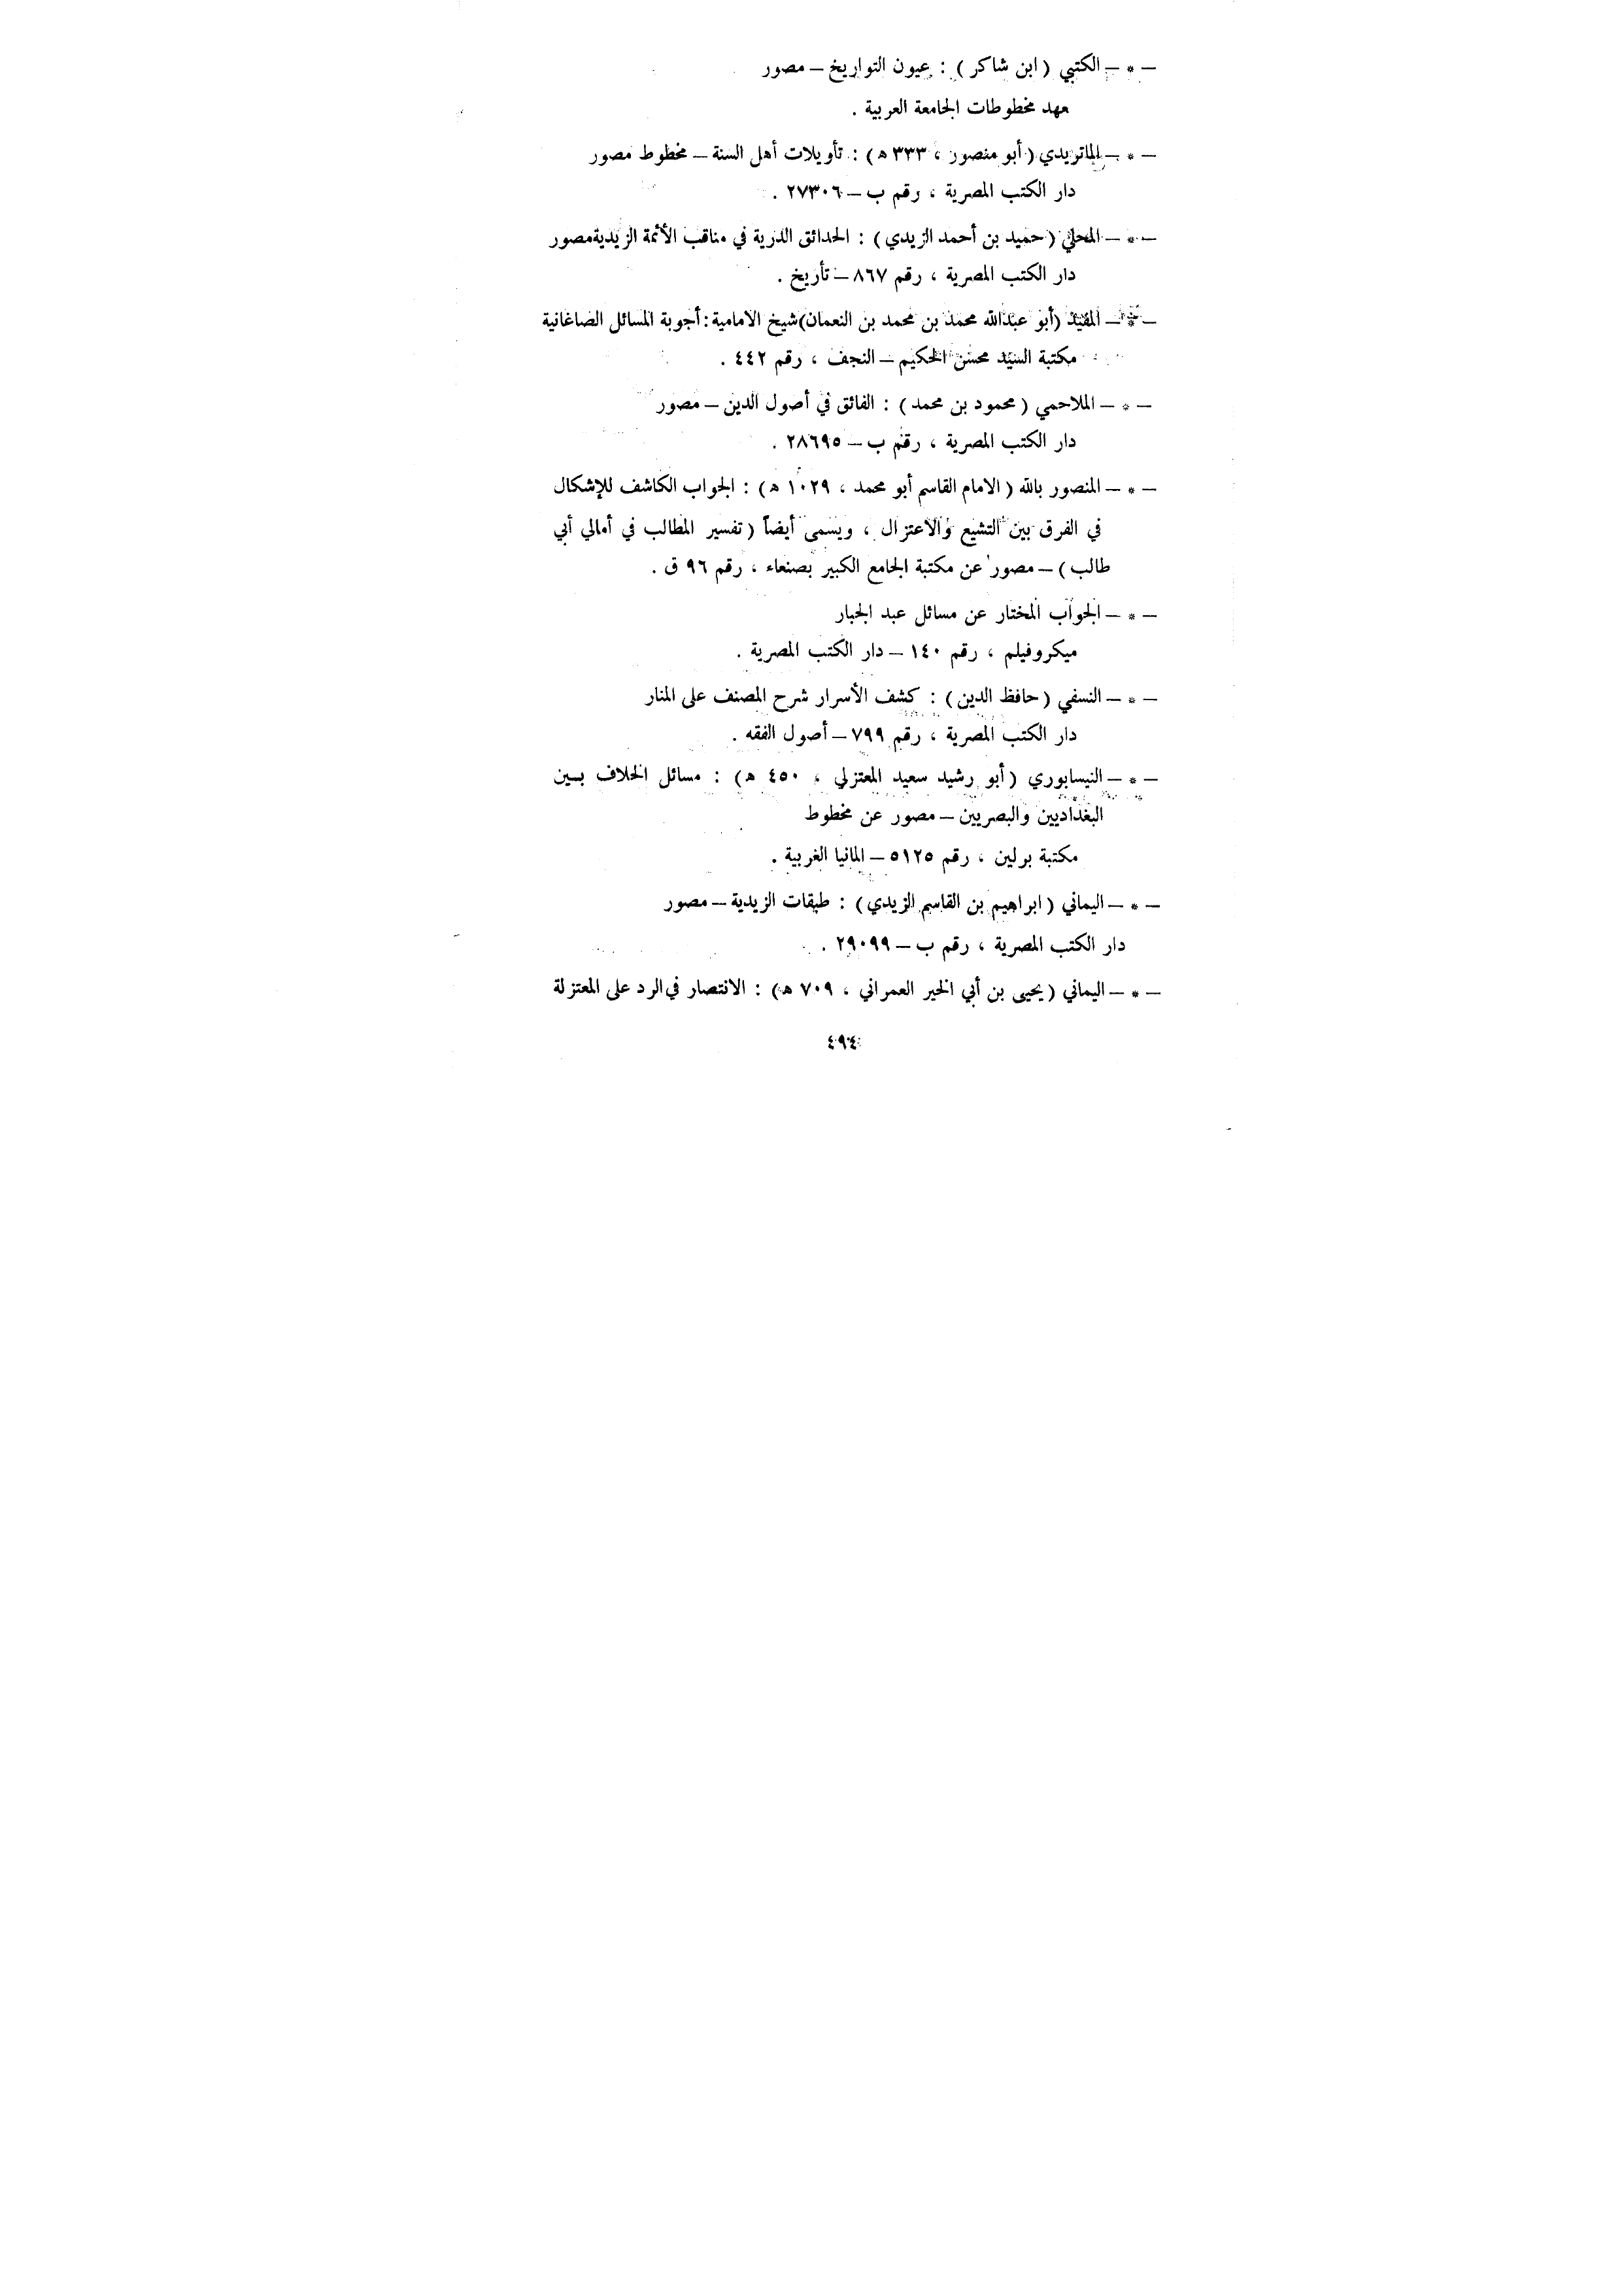 — * — الكتبي ( ابن شاكر ) : عيون التواريخ — مصور
عهد مخطوطات الجامعة العربية .
— * — الماتريدي ( أبو منصور ، ٣٣٣ ه ) : تأويلات أهل السنة — مخطوط مصور
دار الكتب المصرية ، رقم ب — ٢٧٣٠٦ .
— * — المحلي ( حميد بن أحمد الزيدي ) : الحدائق الدرية في مناقب الأئمة الزيدية مصور
دار الكتب المصرية ، رقم ٨٦٧ — تأريخ .
— * — المفيد (أبو عبدالله محمد بن محمد بن النعمان) شيخ الامامية : أجوبة المسائل الصاغانية
مكتبة السيد محسن الحكيم — النجف ، رقم ٤٤٢ .
— * — الملاحمي ( محمود بن محمد ) : الفائق في أصول الدين — مصور
دار الكتب المصرية ، رقم ب — ٢٨٦٩٥ .
— * — المنصور بالله ( الامام القاسم أبو محمد ، ١٠٢٩ ه ) : الجواب الكاشف للإشكال
في الفرق بين التشيع والاعتزال ، ويسمى أيضاً ( تفسير المطالب في أمالي أبي
طالب ) — مصور عن مكتبة الجامع الكبير بصنعاء ، رقم ٩٦ ق .
— * — الجواب المختار عن مسائل عبد الجبار
ميكروفيلم ، رقم ١٤٠ — دار الكتب المصرية .
— * — النسفي ( حافظ الدين ) : كشف الأسرار شرح المصنف على المنار
دار الكتب المصرية ، رقم ٧٩٩ — أصول الفقه .
— * — النيسابوري ( أبو رشيد سعيد المعتزلي ، ٤٥٠ ه ) : مسائل الخلاف بين
البغداديين والبصريين — مصور عن مخطوط
مكتبة برلين ، رقم ٥١٢٥ — المانيا الغربية .
— * — اليماني ( ابراهيم بن القاسم الزيدي ) : طبقات الزيدية — مصور
دار الكتب المصرية ، رقم ب — ٢٩٠٩٩ .
— * — اليماني ( يحيى بن أبي الخير العمراني ، ٧٠٩ ه ) : الانتصار في الرد على المعتزلة
٤٩٤